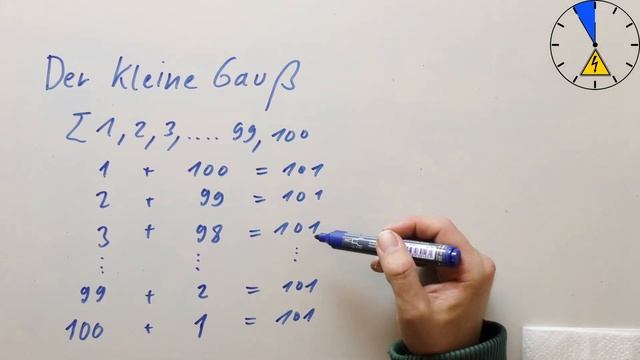 Der kleine Gauß
∑ 1, 2, 3, .... 99, 100
1 + 100 = 101
2 + 99 = 101
3 + 98 = 101
⋮ ⋮ ⋮
99 + 2 = 101
100 + 1 = 101